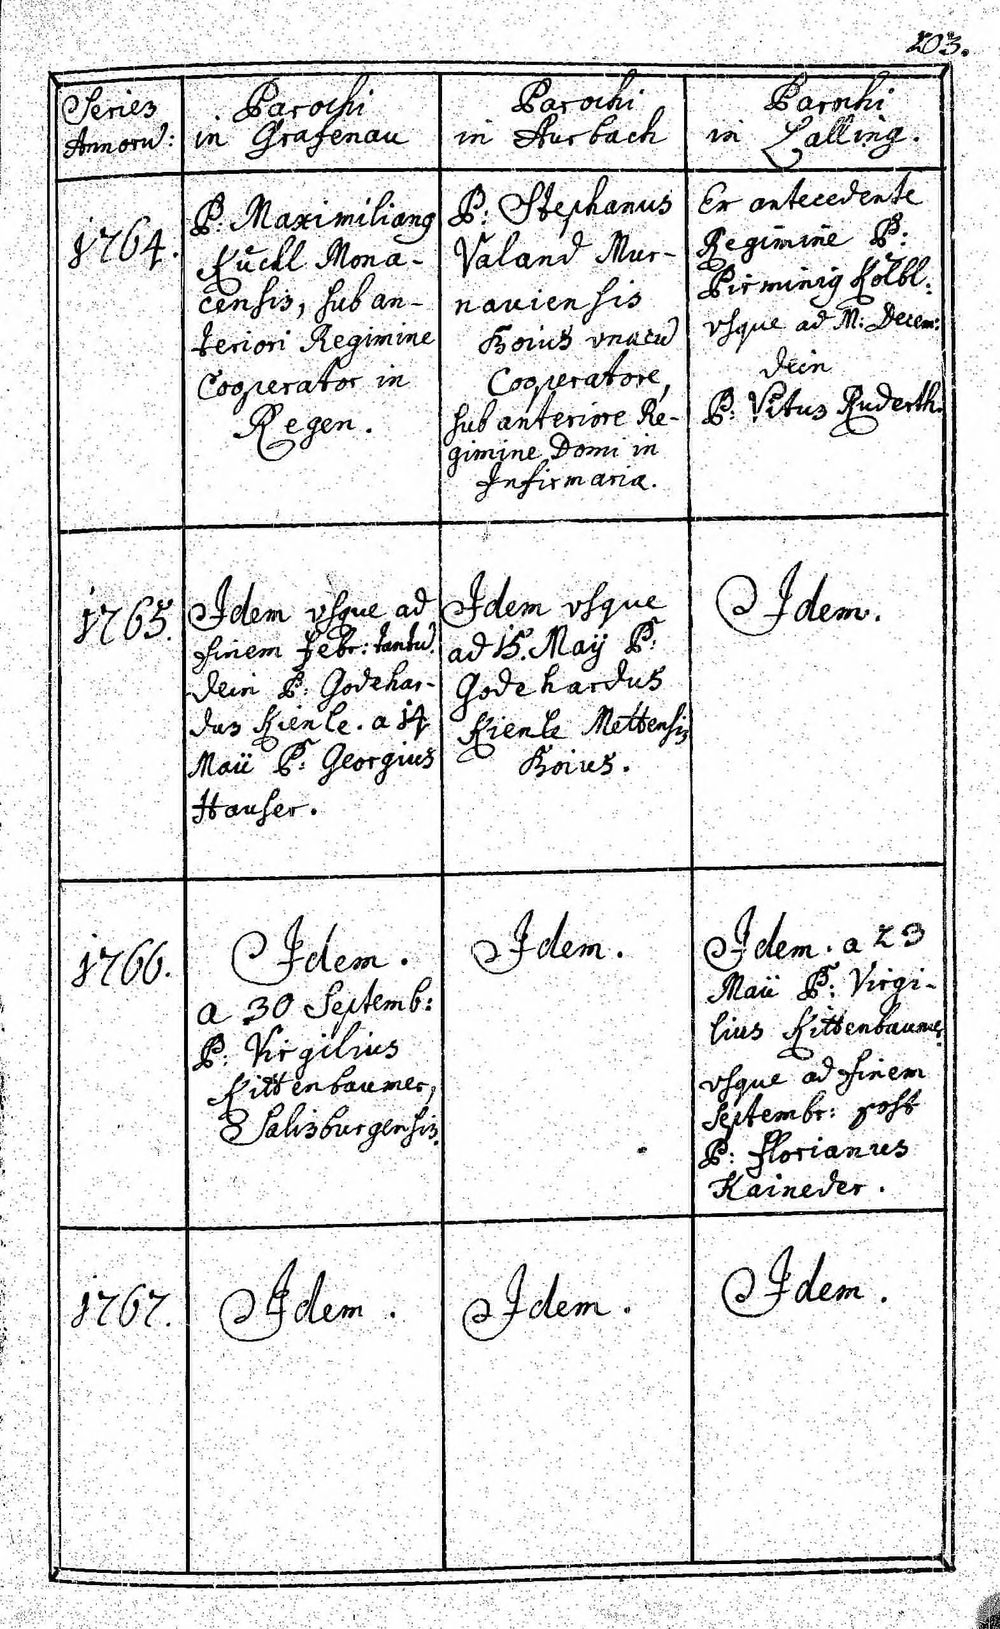 203.
Series
Annorū:
Parochi
in Grafenau
Parochi
in Aurbach
Parochi
in Lalling.
1764.
P: Maximilianꝰ
Küchl Mona-
censis, sub an-
teriori Regimine
Cooperator in
Regen.
P: Stephanus
Valand Mur-
naviensis
Boius vnacū
Cooperatore,
sub anteriore Re-
gimine Domi in
Infirmaria.
Ex antecedente
Regimine P:
Pirminiꝰ Kölbl.
vsque ad M: Decem:
dein
P: Vitus Ruderth.
1765.
Idem vsque ad
finem Febr: tantū.
dein P: Godehar-
dus Kienle. a 14
Maii P: Georgius
Hauser.
Idem vsque
ad 15. Maÿ P:
Godehardus
Kienle Mettensis
Boius.
Idem.
1766.
Idem.
a 30 Septemb:
P: Virgilius
Kittenbaumer,
Salisburgensis.
Idem.
Idem. a 23
Maii P: Virgi-
lius Kittenbaumer
vsque ad finem
Septembr: post
P: Florianus
Kaineder.
1767.
Idem.
Idem.
Idem.